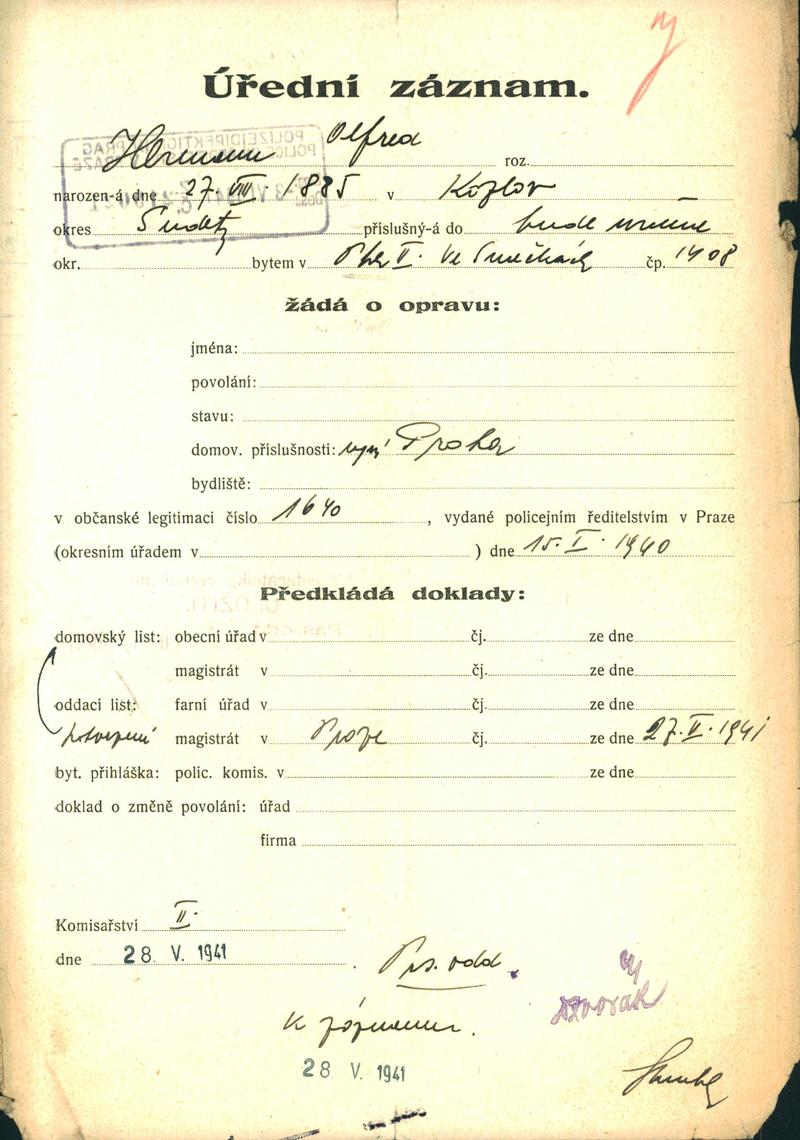 Úřední záznam.
Hermann Alfred roz.
narozen-á dne 27. VIII. 1885 v Kozlov
okres Sudety příslušný-á do
okr. bytem v II. Ve Smečkách čp. 1408
žádá o opravu:
jména:
povolání:
stavu:
domov. příslušnosti: nyní Praha
bydliště:
v občanské legitimaci číslo 1640, vydané policejním ředitelstvím v Praze
(okresním úřadem v ) dne 15. I. 1940
Předkládá doklady:
domovský list: obecní úřad v čj. ze dne
magistrát v čj. ze dne
oddací list: farní úřad v čj. ze dne
potvrzení magistrát v Praze čj. ze dne 27. II. 1941
byt. přihláška: polic. komis. v ze dne
doklad o změně povolání: úřad
firma
Komisařství II.
dne 28. V. 1941
odd.
Dvorak
k záznamu.
28 V. 1941